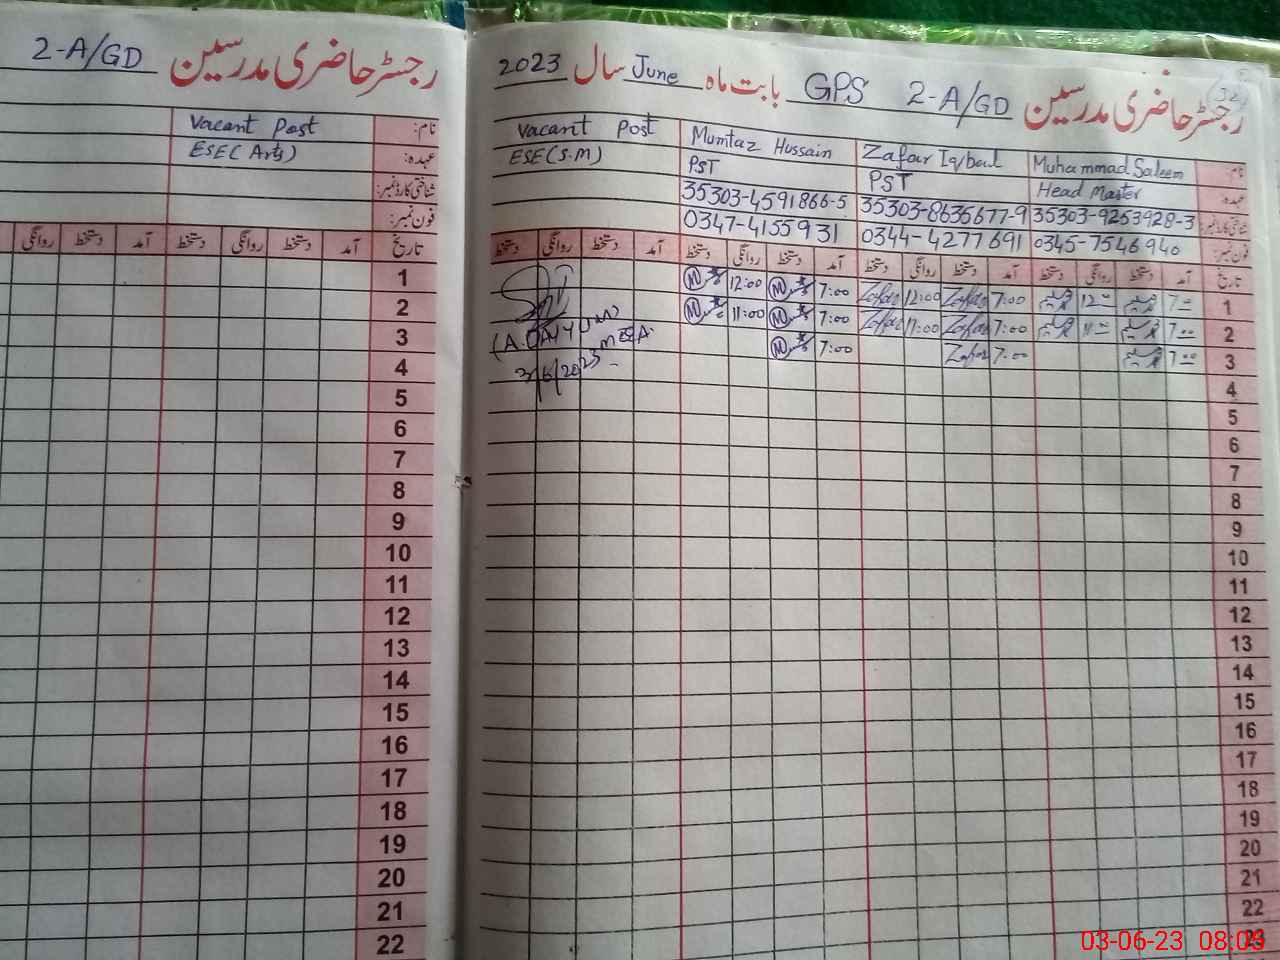 2-A/GD رجسٹر حاضری مدرسین
نام: Vacant Post
عہدہ: ESE (Arts)
شناختی کارڈ نمبر:
فون نمبر:
تاریخ آمد دستخط روانگی دستخط آمد دستخط روانگی
1
2
3
4
5
6
7
8
9
10
11
12
13
14
15
16
17
18
19
20
21
22
32
رجسٹر حاضری مدرسین GPS 2-A/GD بابت ماہ June سال 2023
نام: Muhammad Saleem Zafar Iqbal Mumtaz Hussain Vacant Post
عہدہ: Head Master PST PST ESE (S.M)
شناختی کارڈ نمبر: 35303-9253928-3 35303-8635677-9 35303-4591866-5
فون نمبر: 0345-7546940 0344-4277691 0347-4155931
تاریخ آمد دستخط روانگی دستخط آمد دستخط روانگی دستخط آمد دستخط روانگی دستخط آمد دستخط روانگی دستخط
1 7:00 12:00 7:00 Zafar 12:00 Zafar 7:00 12:00
2 7:00 11:00 7:00 Zafar 11:00 Zafar 7:00 11:00
3 7:00 7:00 Zafar 7:00
3/6/2023
4
5
6
7
8
9
10
11
12
13
14
15
16
17
18
19
20
21
22
23
03-06-23 08:09